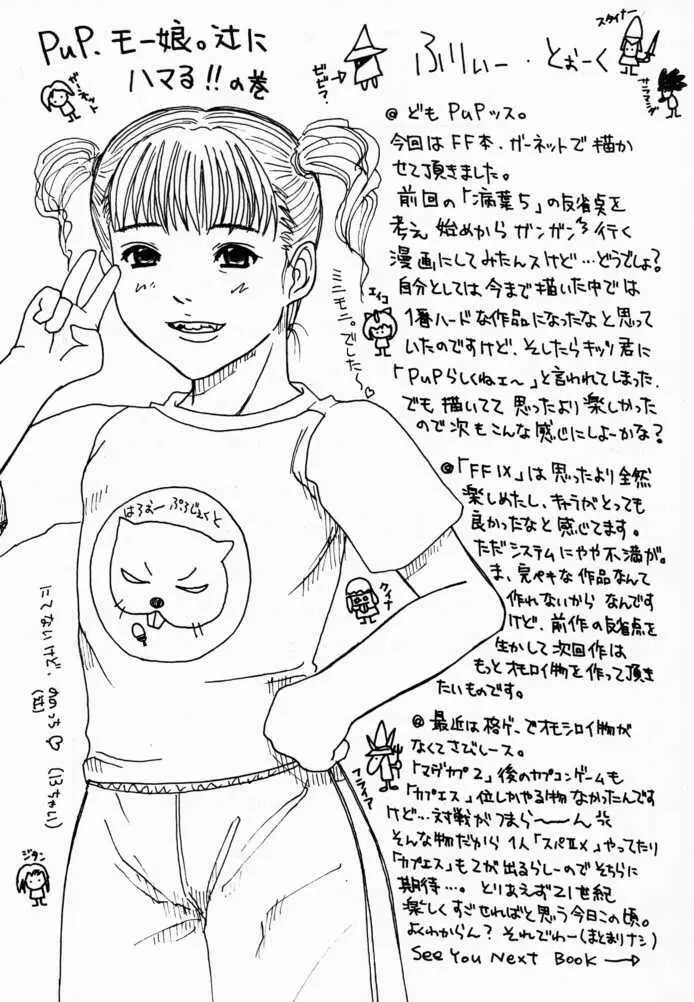 PuP. モー娘。辻に
ハマる!! の巻
ビビ?
ふりぃー・とぉーく
スタイナー
サラマンダ
@ ども PuPッス。
今回はFF本、ガーネットで描か
せて頂きました。
前回の「病葉5」の反省点を
考え 始めから ガンガン 行く
漫画にしてみたんスけど…どうでしょ?
自分としては今まで描いた中では
1番ハードな作品になったなと思って
いたのですけど、そしたらキッツ君に
「PuPらしくねェ〜」と言われてしまった。
でも 描いてて 思ったより 楽しかった
ので次もこんな感じにしよーかな?
エイコ
ミニモニ。でした〜♡
はろおーぷろじぇくと
@「FFIX」は思ったより全然
楽しめたし、キャラがとっても
良かったなと感じてます。
ただシステムにやや不満が。
ま、完ペキな作品なんて
作れないから なんです
けど、前作の反省点を
生かして次回作は
もっとオモロイ物を作って頂き
たいものです。
クイナ
にてないけど、ののっち♡ (13ちゃい)
(辻)
@ 最近は格ゲーでオモシロイ物が
なくてさびしース。
「マヴカプ2」後のカプコンゲームも
「カプエス」位しかやる物なかったんです
けど…対戦がつまら〜〜ん
そんな物だから 1人「スパIIX」やってたり
「カプエス」も2が出るらしーのでそちらに
期待…。とりあえず21世紀
楽しくすごせればと思う今日この頃。
よくわからん? それでわー(まとまりナシ)
See You Next Book →
フライア
ジタン